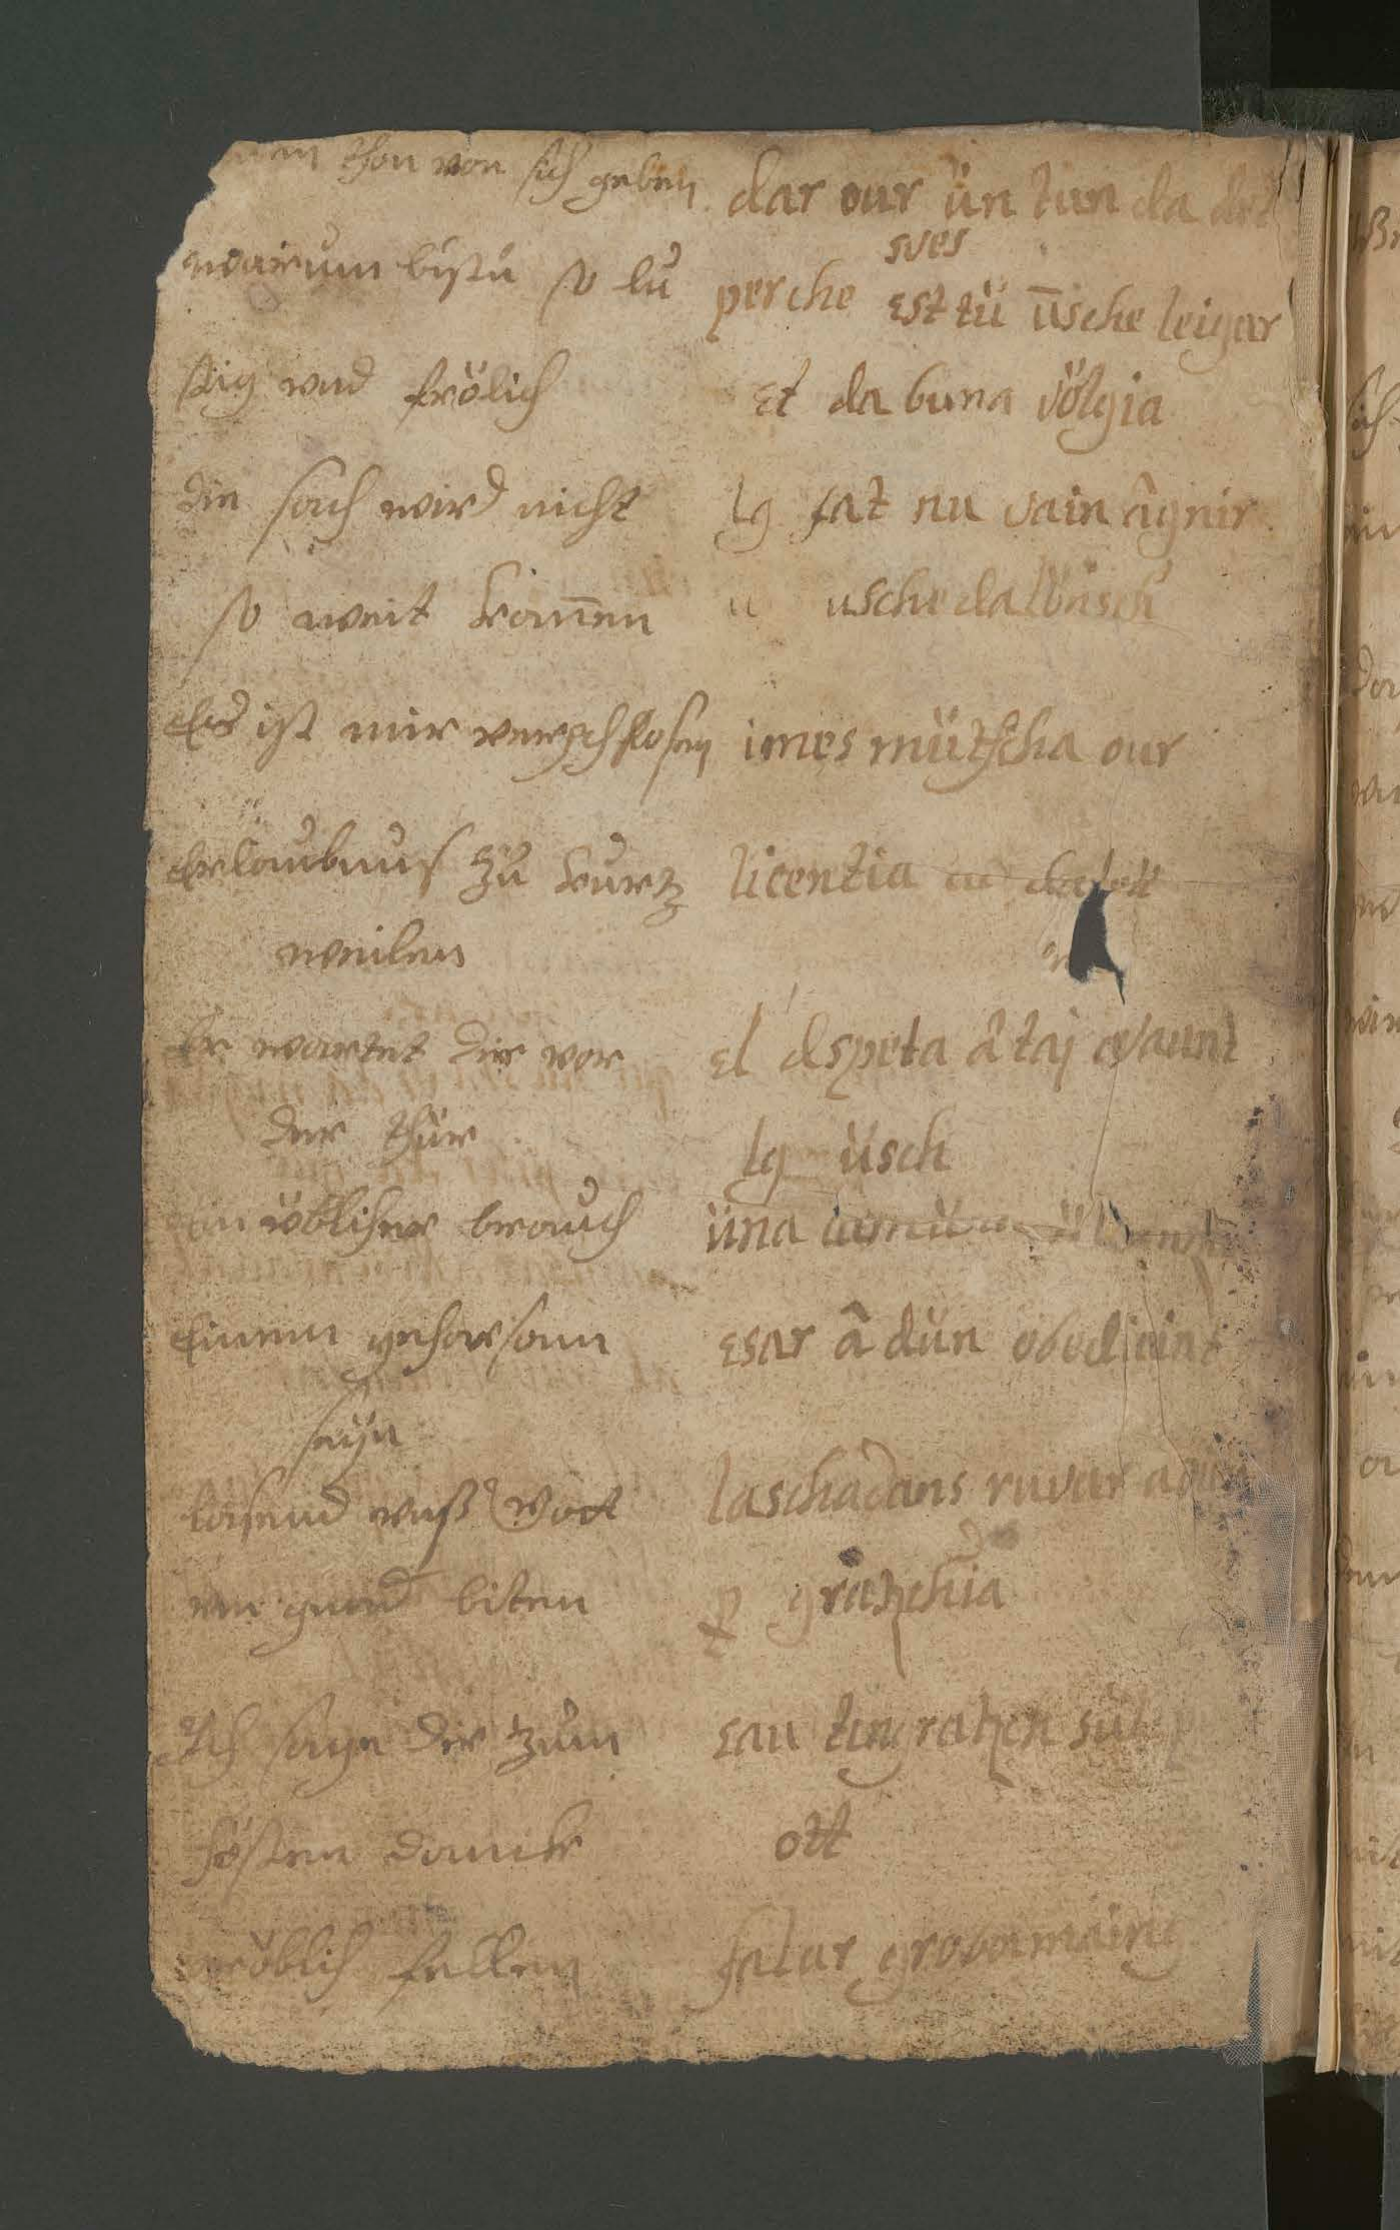 thon von sich geben dar our ün tun da
sves
warum bistu so lu perche est tü üsche leigar
stig vnd frölich et da buna völgia
die sach wird nicht lg fat nu vain âgnir
so weit komen usche da lönsch
Es ist mir verschlosen imes mütscha our
Erlaubnus zu kurtz licentia
weilen
Er wartet dir vor el dspeta â taj avaunt
der thür lg üsch
ein üblicher brauch üna
Einem gehorsam esar â dün obedieint
seÿn
lasend vnß Gott laschadans ruvar
vm gnad biten p gratzchia
Ich sage dir zum eau tingratzch
hösten danck ott
gröblich fellen falar grobamaing